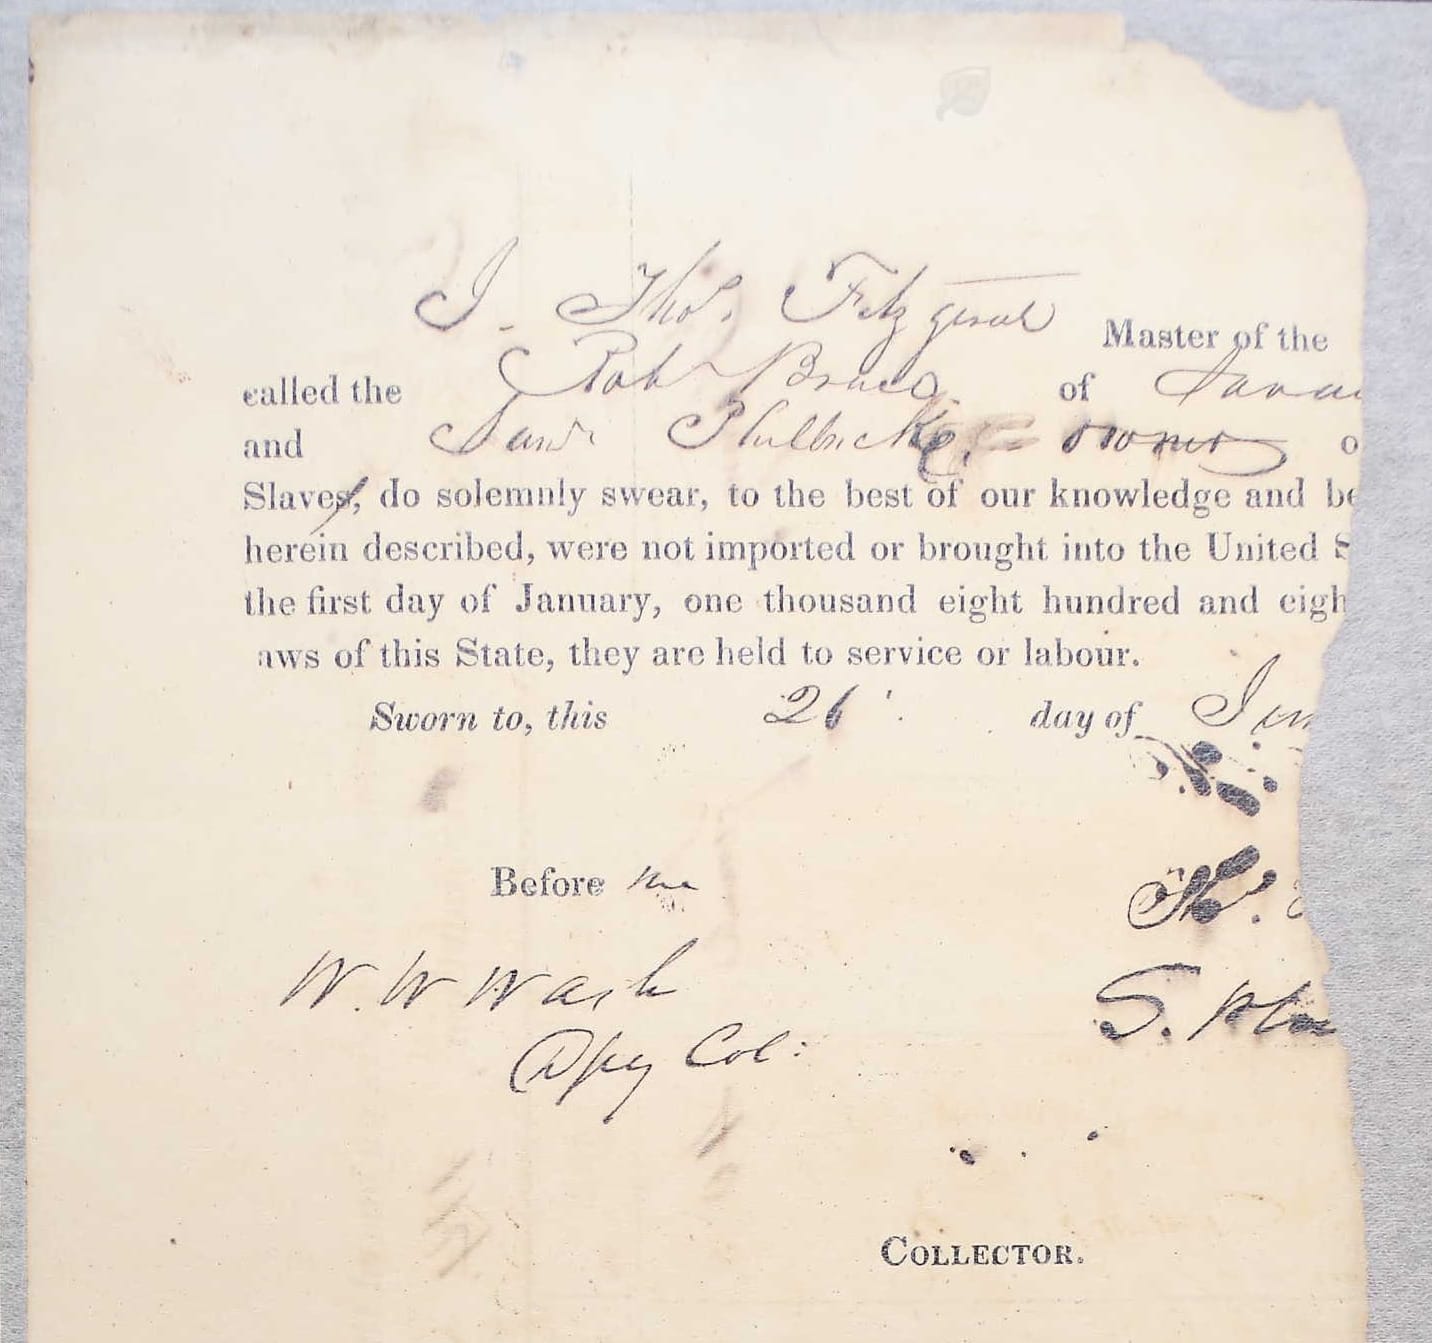 I. Thos. Fitzgerald Master of the
called the Robt Bruce of Savan
and Saml Philbrick, owner o
Slaves, do solemnly swear, to the best of our knowledge and be
herein described, were not imported or brought into the United S
the first day of January, one thousand eight hundred and eigh
aws of this State, they are held to service or labour.
Sworn to, this 26 day of
Before me
Tho.
W. W Wash
S. Ph
Dpy Col:
COLLECTOR.